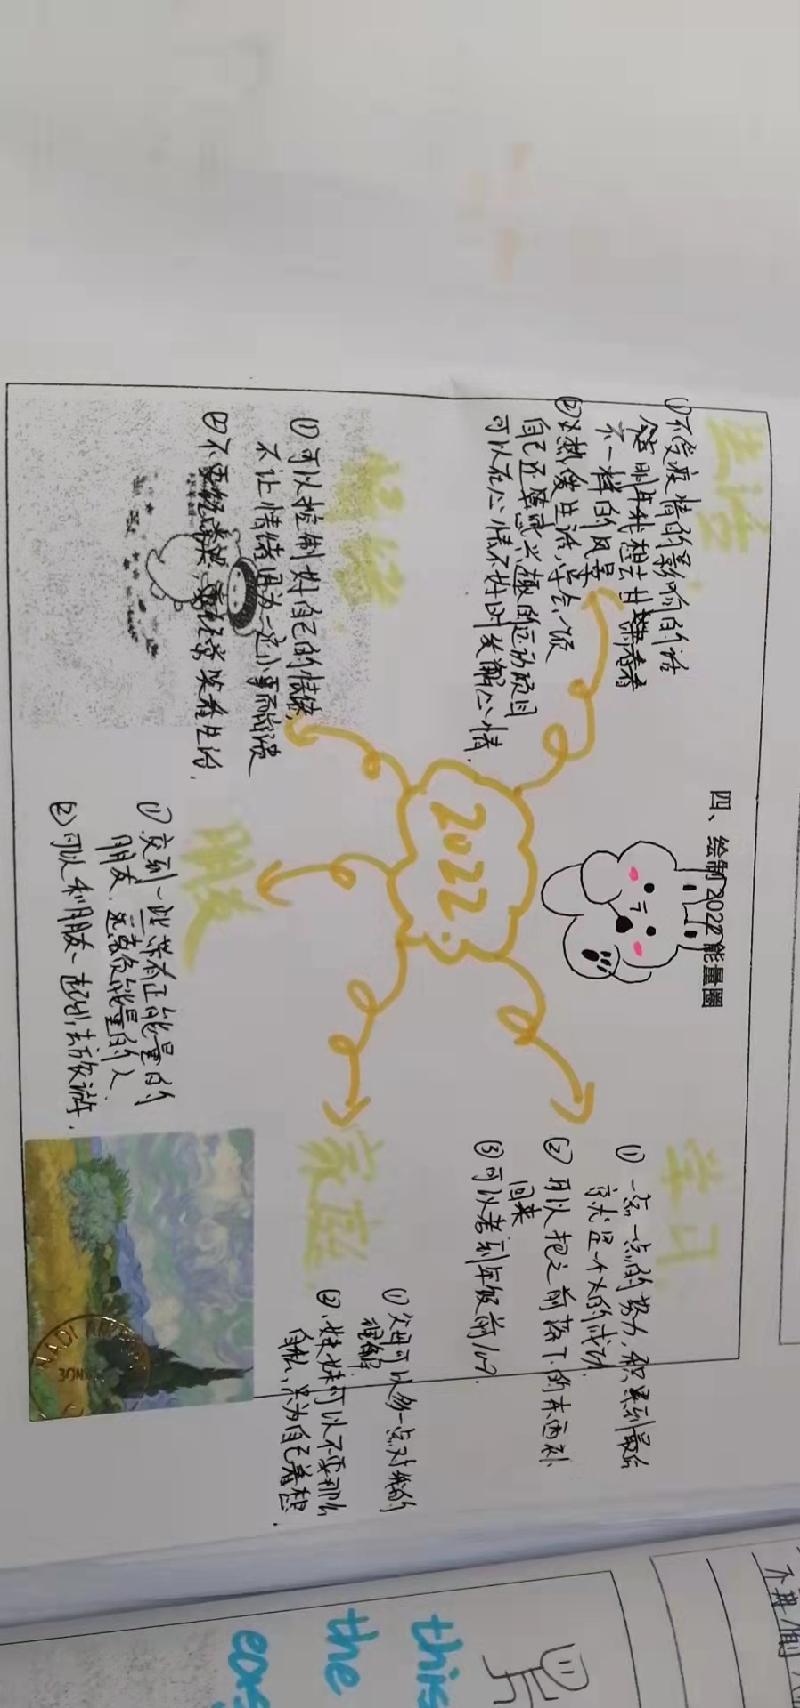 四、绘制2022能量圈
2022.
生活
①不受疫情的影响的话
明年我想去甘肃看看
不一样的风景
②热爱生活,学会做饭
自己还要感兴趣的运动项目
可以在心情不好时发解心情.
学习
①一点一点的努力,积累到最后
就是个大的成功.
②可以把之前落下的东西补
回来
③可以考到年级前100.
情绪
①可以控制好自己的情绪,
不让情绪因为一定小事而崩溃
②不要
朋友
①交到一些带有正能量的
朋友.远离负能量的人.
②可以和朋友一起出去旅游.
家庭
①父母可以多一点对我的
理解
②.妹妹可以不要那么
自私,只为自己着想.
this
the